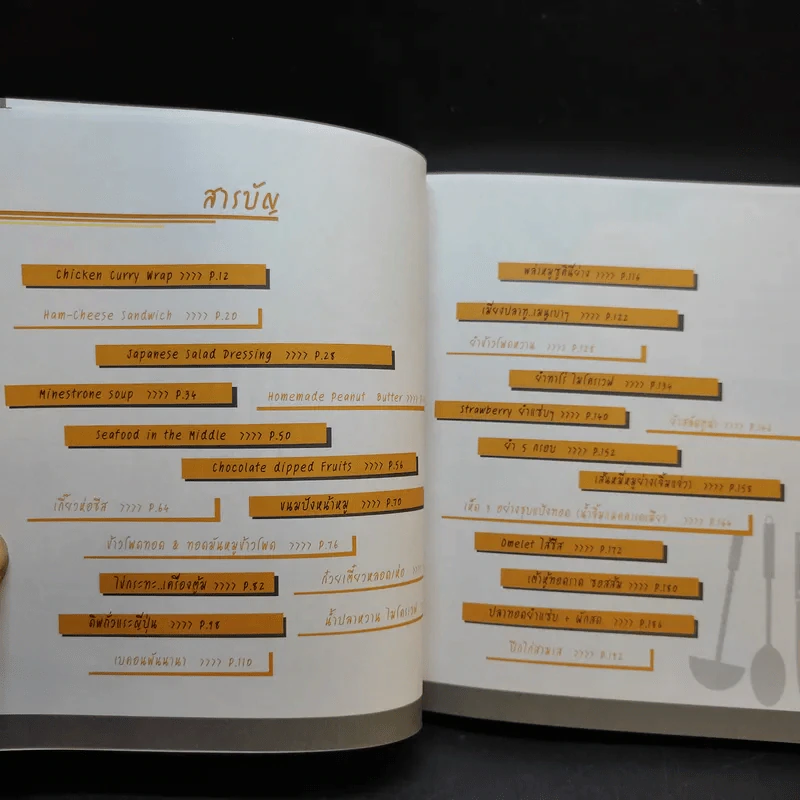 สารบัญ
Chicken Curry Wrap >>>> P.12
Ham-Cheese Sandwich >>>> P.20
Japanese Salad Dressing >>>> P.28
Minestrone Soup >>>> P.34
Homemade Peanut Butter >>>>
Seafood in the Middle >>>> P.50
Chocolate dipped Fruits >>>> P.56
เกี๊ยวห่อชีส >>>> P.64
ขนมปังหน้าหมู >>>> P.70
ข้าวโพดทอด & ทอดมันหมูข้าวโพด >>>> P.76
ไข่กระทะ..เครื่องตุ้ม >>>> P.82
ก๋วยเตี๋ยวหลอดเห่อ >>>>
ดิพถั่วแระญี่ปุ่น >>>> P.98
น้ำปลาหวาน ไมโครเวฟ
เบคอนพันนานา >>>> P.110
พล่าหมูซูกินีย่าง >>>> P.116
เมี่ยงปลาทู..เมนูเบาๆ >>>> P.122
ยำข้าวโพดหวาน >>>> P.128
ยำทาโร่ ไมโครเวฟ >>>> P.134
Strawberry ยำแซ่บๆ >>>> P.140
>>>> P.146
ยำ 5 กรอบ >>>> P.152
เส้นหมี่หมูย่าง(จิ้มแจ่ว) >>>> P.158
เห็ด 3 อย่างชุบแป้งทอด >>>> P.164
Omelet ไส้ชีส >>>> P.172
เต้าหู้ทอดราด ซอสส้ม >>>> P.180
ปลาทอดยำแซ่บ + ผักสด >>>> P.186
ปีกไก่สามเส >>>> P.192